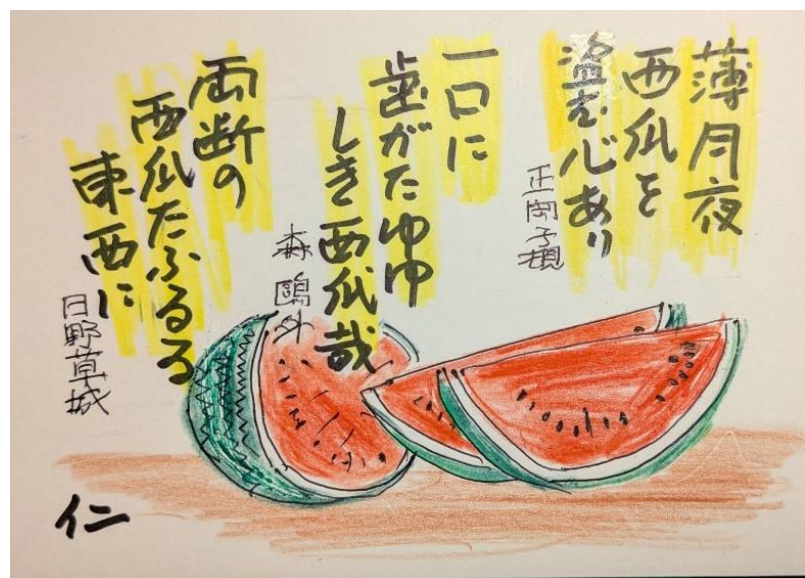 薄月夜
西瓜を
盗む心あり
正岡子規
一口に
歯がたゆゆ
しき西瓜哉
森鴎外
両断の
西瓜たふるる
東西に
日野草城
仁